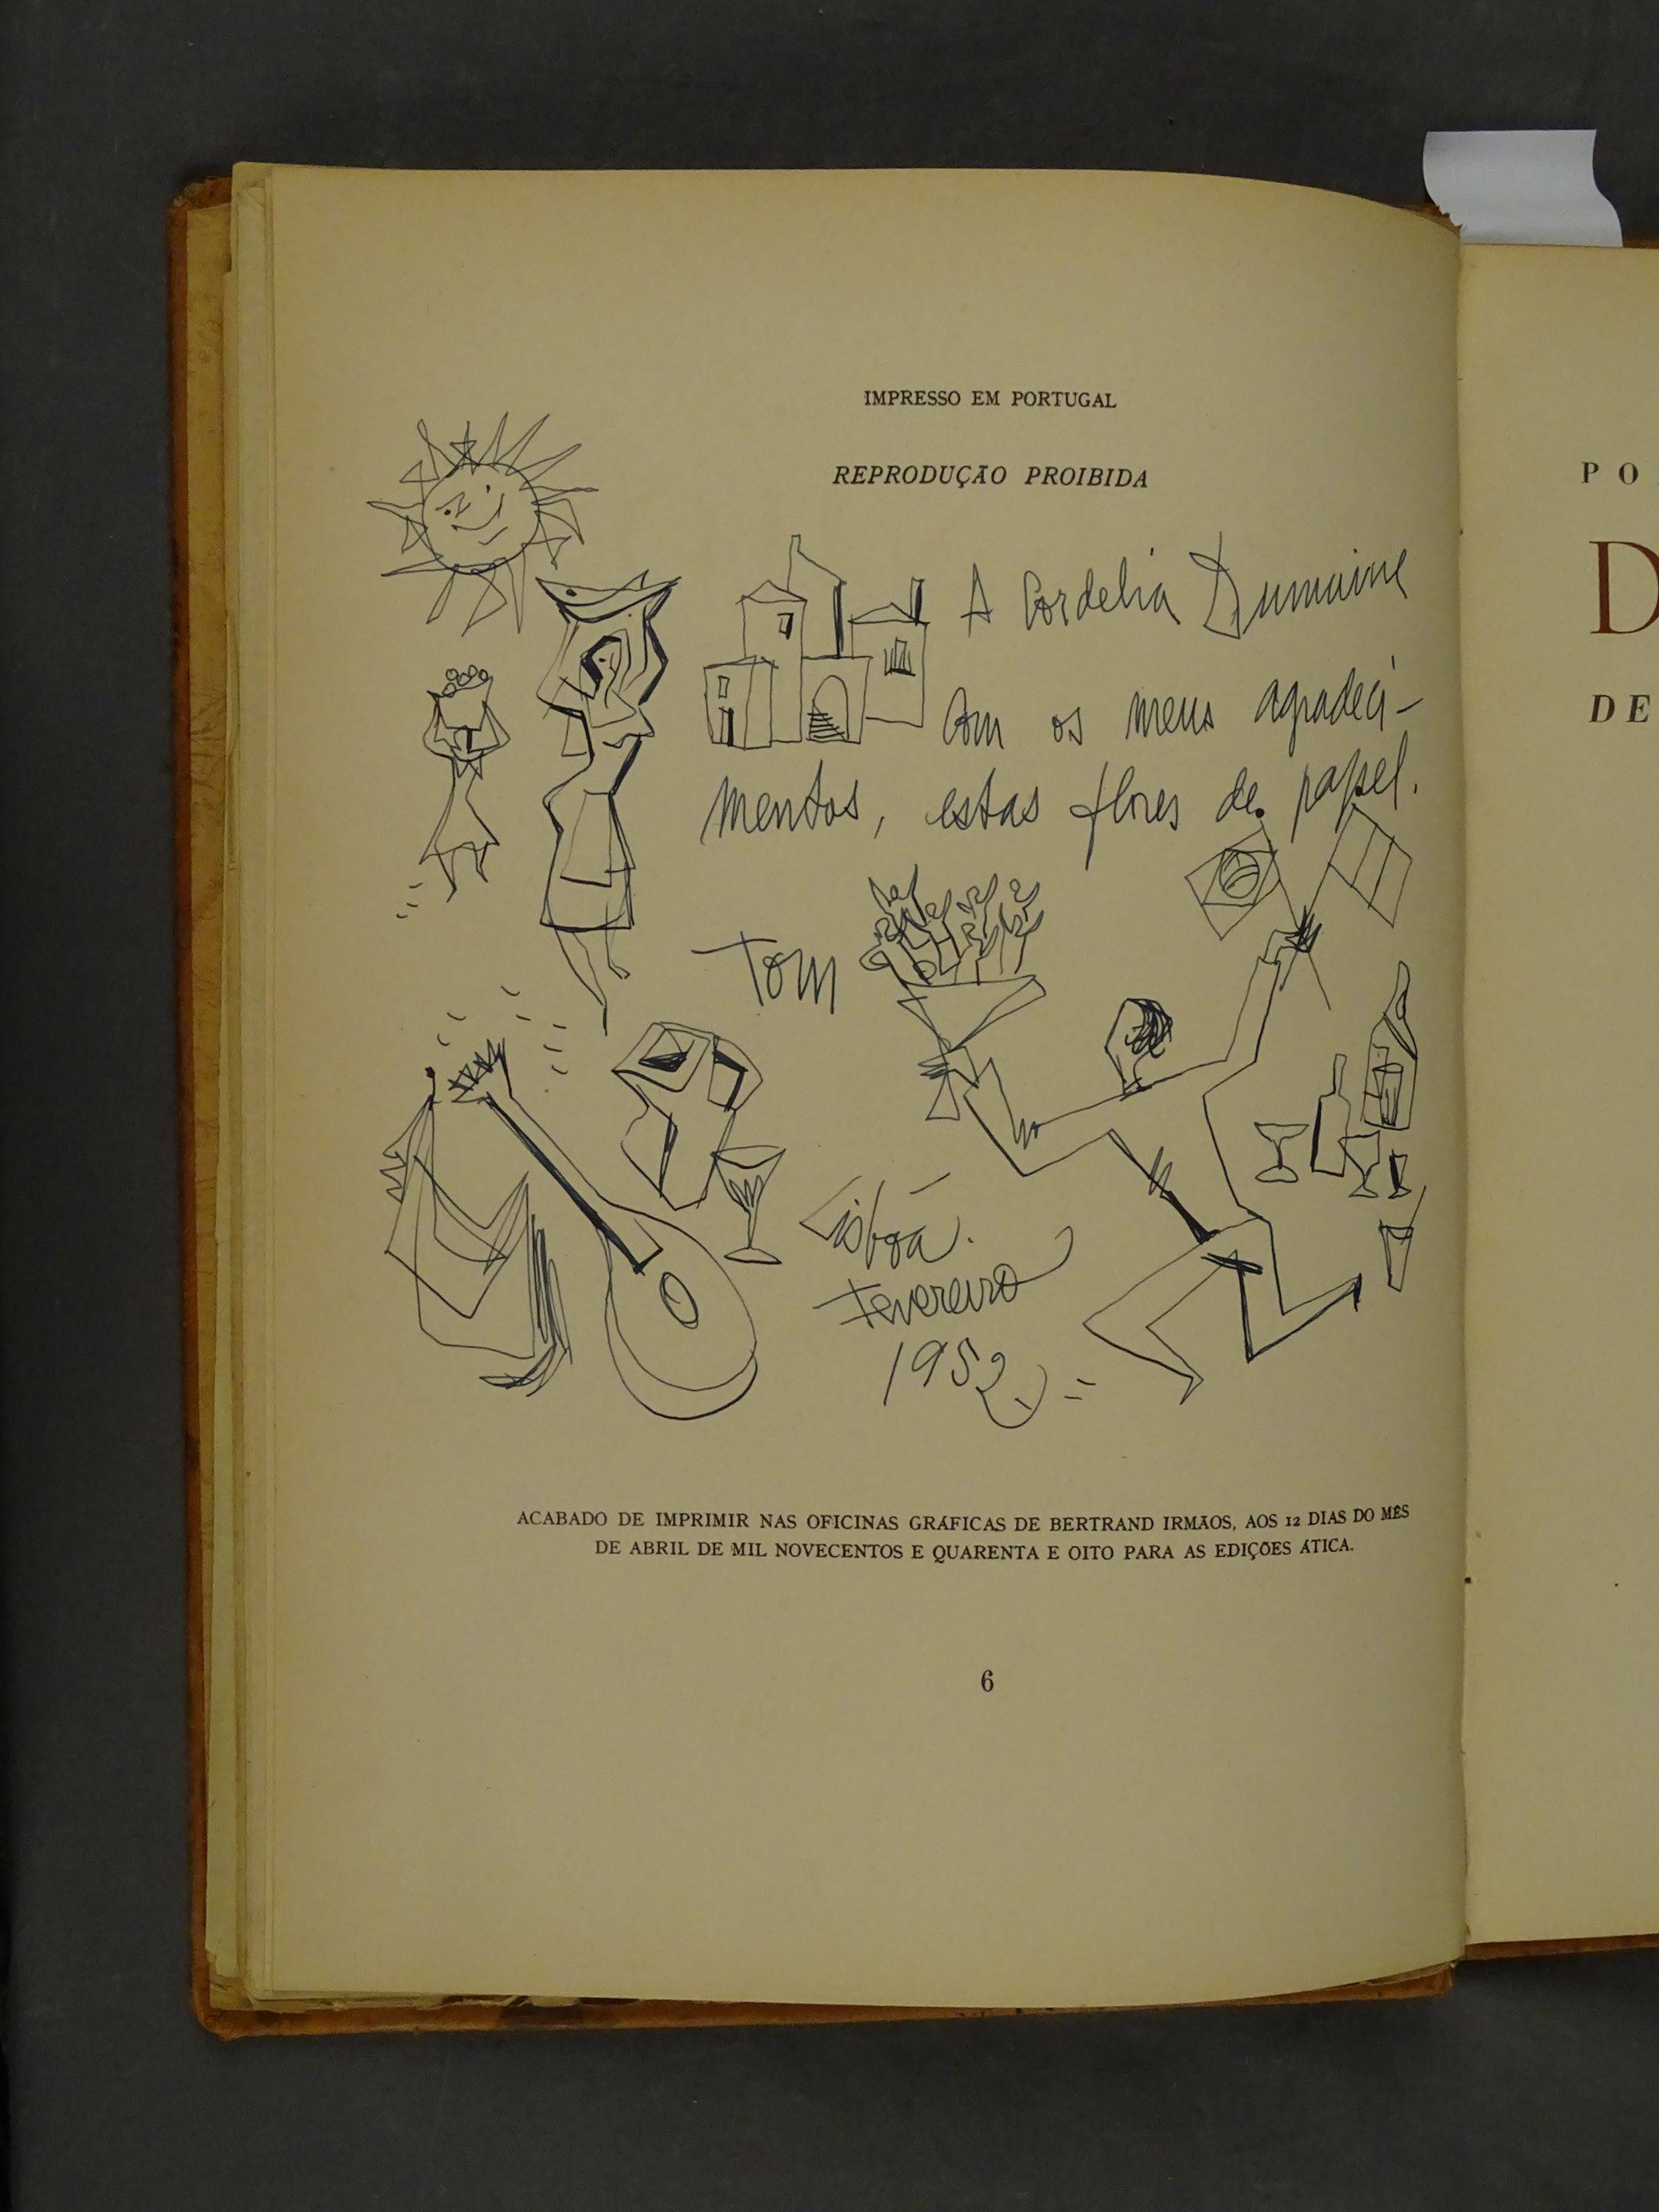 IMPRESSO EM PORTUGAL
REPRODUÇÃO PROIBIDA
A Cordelia Dumaine
Com os meus agradeci-
mentos, estas flores de papel.
Tom
Lisboa.
Fevereiro
1952
ACABADO DE IMPRIMIR NAS OFICINAS GRÁFICAS DE BERTRAND IRMÃOS, AOS 12 DIAS DO MÊS
DE ABRIL DE MIL NOVECENTOS E QUARENTA E OITO PARA AS EDIÇÕES ÁTICA.
6
PO
D
DE